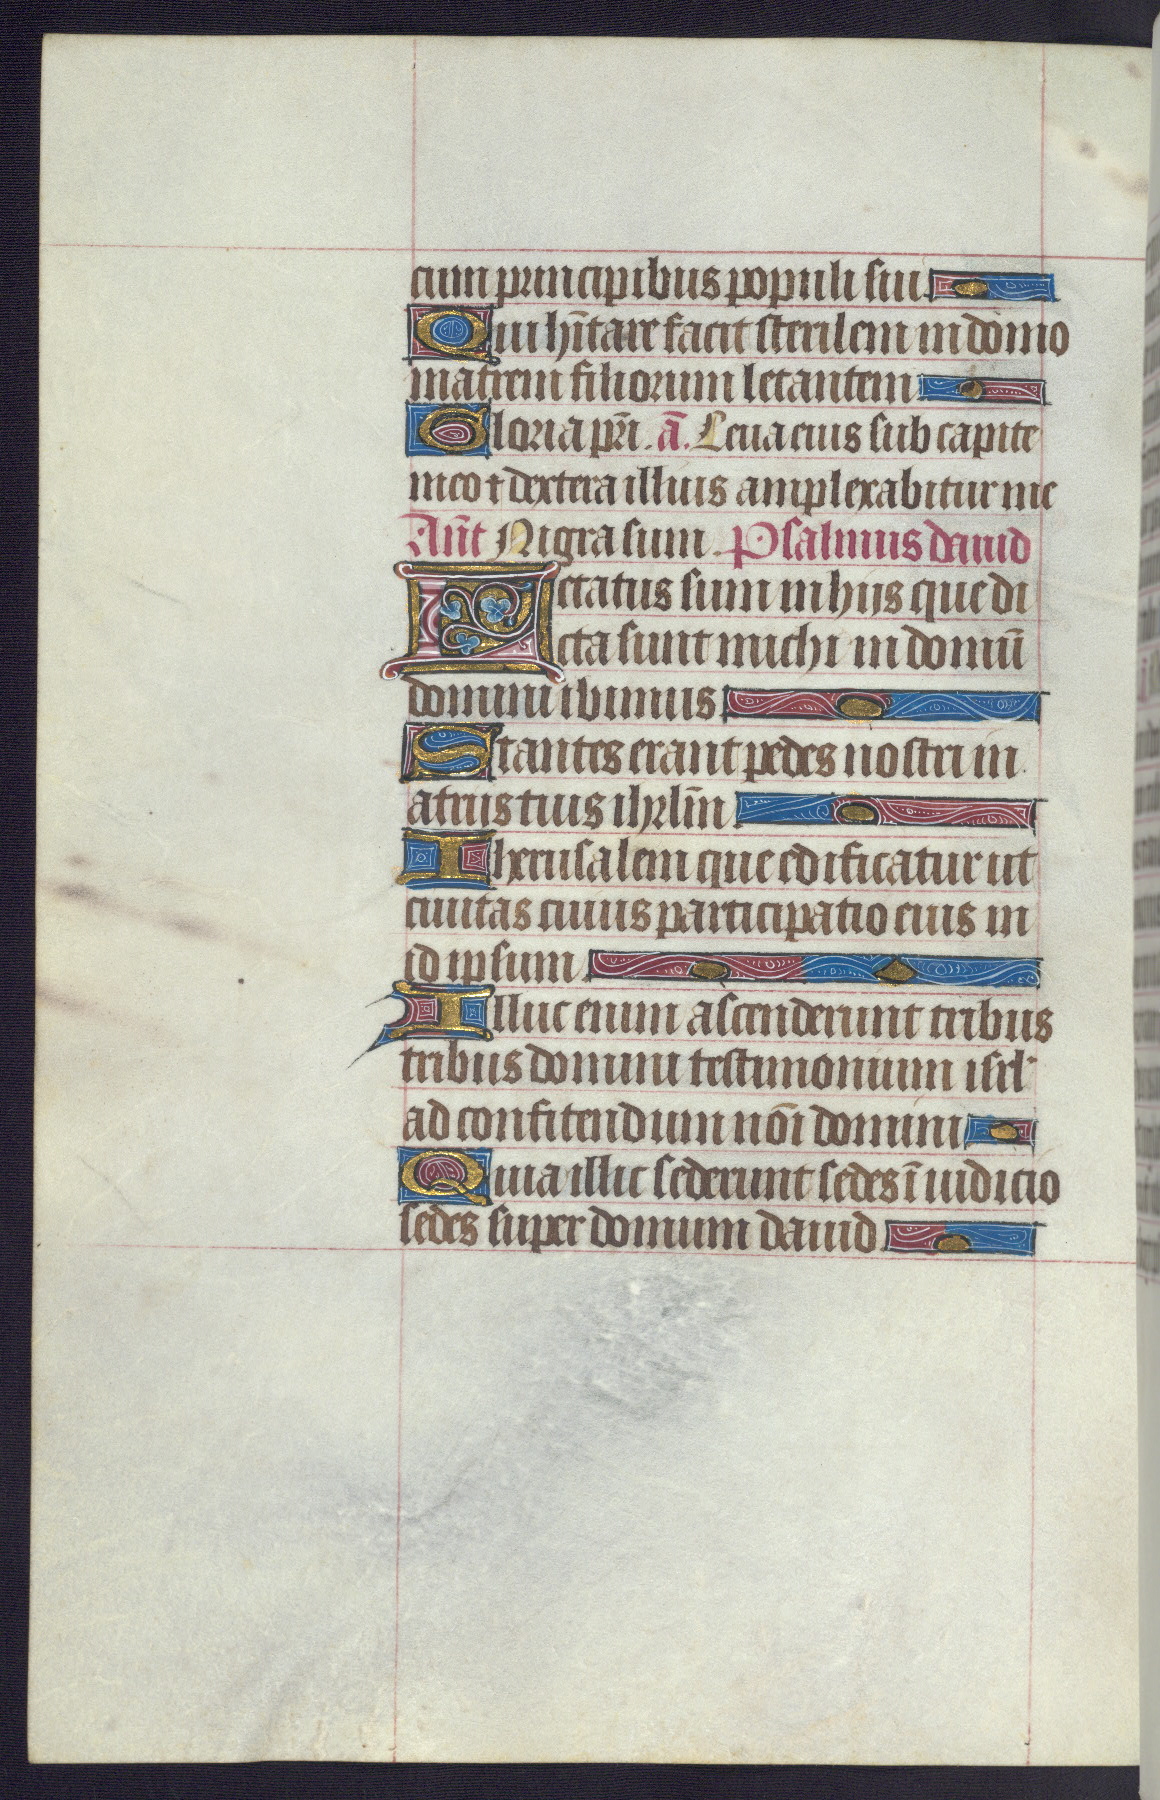 cum principibus populi sui
Qui hītare facit sterilem in domo
matrem filiorum letantem
Gloria pr̄i. ā. Leua eius sub capite
meo ⁊ dextera illius amplexabitur me
An̄t Nigra sum. Psalmus dauid
Letatus sum in hijs que di
cta sunt michi in domū
domini ibimus
Stantes erant pedes nostri in
atrijs tuis ihrl̄m
Iherusalem que edificatur ut
ciuitas cuius participatio eius in
id ipsum
Illuc enim ascenderunt tribus
tribus domini testimonium isrl
ad confitendum nōi domini
Quia illic sederunt sedes ī iudicio
sedes super domum dauid